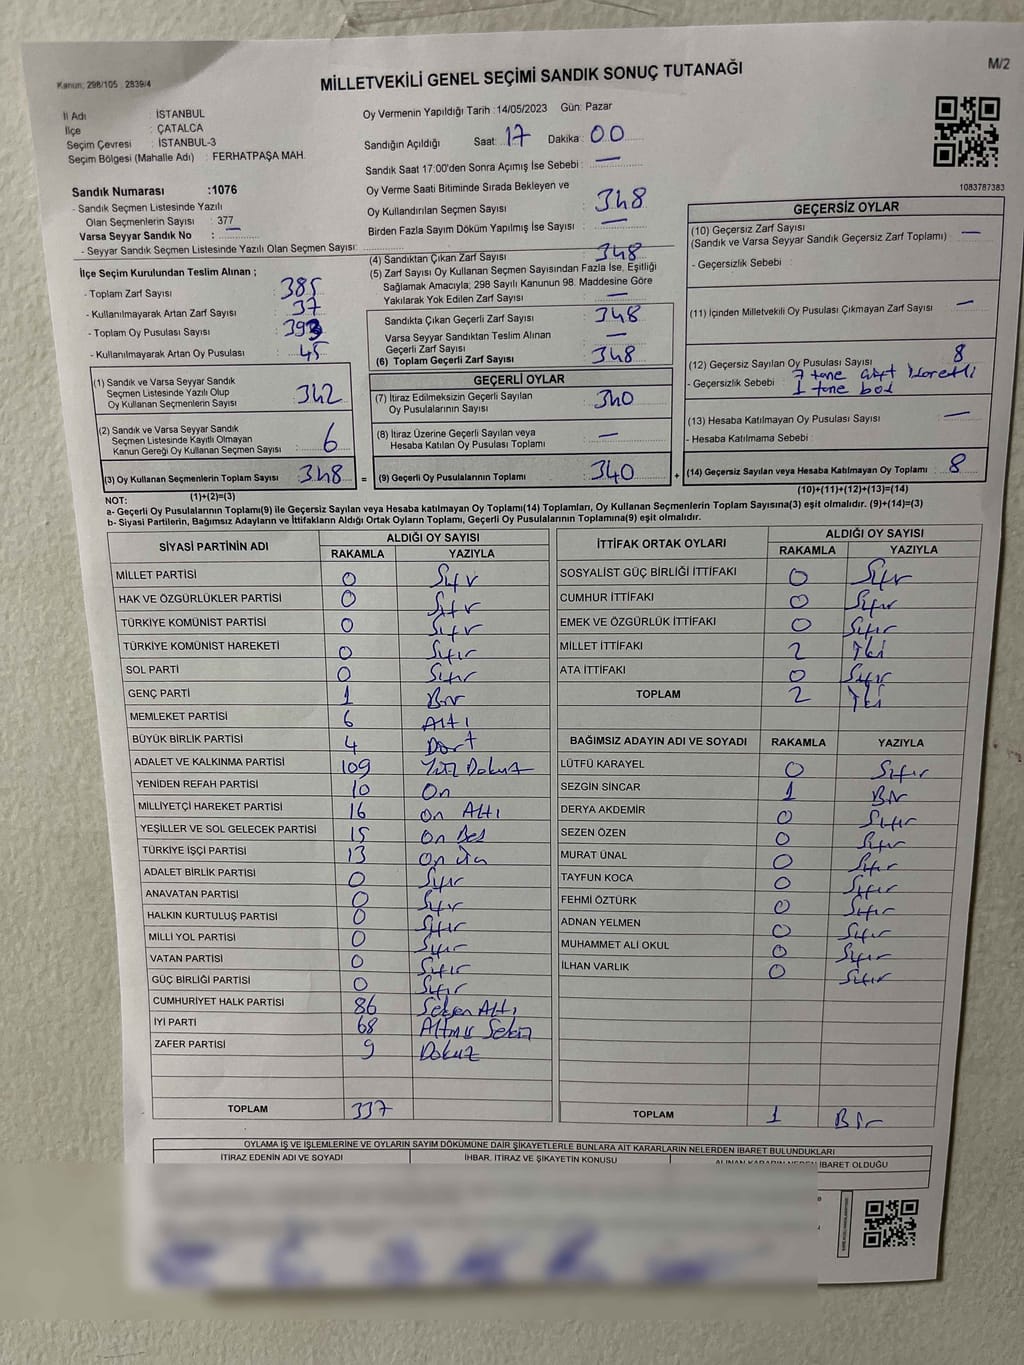 Kanun: 298/105 , 2839/4
M/2
MİLLETVEKİLİ GENEL SEÇİMİ SANDIK SONUÇ TUTANAĞI
İl Adı : İSTANBUL
İlçe : ÇATALCA
Seçim Çevresi : İSTANBUL-3
Seçim Bölgesi (Mahalle Adı) : FERHATPAŞA MAH.
Sandık Numarası :1076
- Sandık Seçmen Listesinde Yazılı
Olan Seçmenlerin Sayısı : 377
Varsa Seyyar Sandık No : —
- Seyyar Sandık Seçmen Listesinde Yazılı Olan Seçmen Sayısı:
Oy Vermenin Yapıldığı Tarih :14/05/2023 Gün: Pazar
Sandığın Açıldığı Saat: 17 Dakika: 00
Sandık Saat 17:00'den Sonra Açımış İse Sebebi : —
Oy Verme Saati Bitiminde Sırada Bekleyen ve
Oy Kullandırılan Seçmen Sayısı : 348
Birden Fazla Sayım Döküm Yapılmış İse Sayısı : —
(4) Sandıktan Çıkan Zarf Sayısı : 348
(5) Zarf Sayısı Oy Kullanan Seçmen Sayısından Fazla İse, Eşitliği
Sağlamak Amacıyla; 298 Sayılı Kanunun 98. Maddesine Göre
Yakılarak Yok Edilen Zarf Sayısı : —
1083787383
İlçe Seçim Kurulundan Teslim Alınan ;
- Toplam Zarf Sayısı : 385
- Kullanılmayarak Artan Zarf Sayısı : 37
- Toplam Oy Pusulası Sayısı : 393
- Kullanılmayarak Artan Oy Pusulası : 45
(1) Sandık ve Varsa Seyyar Sandık
Seçmen Listesinde Yazılı Olup
Oy Kullanan Seçmenlerin Sayısı : 342
(2) Sandık ve Varsa Seyyar Sandık
Seçmen Listesinde Kayıtlı Olmayan
Kanun Gereği Oy Kullanan Seçmen Sayısı : 6
(3) Oy Kullanan Seçmenlerin Toplam Sayısı : 348
Sandıkta Çıkan Geçerli Zarf Sayısı : 348
Varsa Seyyar Sandıktan Teslim Alınan
Geçerli Zarf Sayısı : —
(6) Toplam Geçerli Zarf Sayısı : 348
GEÇERLİ OYLAR
(7) İtiraz Edilmeksizin Geçerli Sayılan
Oy Pusulalarının Sayısı : 340
(8) İtiraz Üzerine Geçerli Sayılan veya
Hesaba Katılan Oy Pusulası Toplamı : —
= (9) Geçerli Oy Pusulalarının Toplamı : 340
GEÇERSİZ OYLAR
(10) Geçersiz Zarf Sayısı : —
(Sandık ve Varsa Seyyar Sandık Geçersiz Zarf Toplamı)
- Geçersizlik Sebebi :
(11) İçinden Milletvekili Oy Pusulası Çıkmayan Zarf Sayısı : —
(12) Geçersiz Sayılan Oy Pusulası Sayısı : 8
- Geçersizlik Sebebi : 7 tane
1 tane boş
(13) Hesaba Katılmayan Oy Pusulası Sayısı : —
- Hesaba Katılmama Sebebi :
+ (14) Geçersiz Sayılan veya Hesaba Katılmayan Oy Toplamı : 8
NOT: (1)+(2)=(3)
(10)+(11)+(12)+(13)=(14)
a- Geçerli Oy Pusulalarının Toplamı(9) ile Geçersiz Sayılan veya Hesaba katılmayan Oy Toplamı(14) Toplamları, Oy Kullanan Seçmenlerin Toplam Sayısına(3) eşit olmalıdır. (9)+(14)=(3)
b- Siyasi Partilerin, Bağımsız Adayların ve İttifakların Aldığı Ortak Oyların Toplamı, Geçerli Oy Pusulalarının Toplamına(9) eşit olmalıdır.
SİYASİ PARTİNİN ADI ALDIĞI OY SAYISI
RAKAMLA YAZIYLA
MİLLET PARTİSİ 0 Sıfır
HAK VE ÖZGÜRLÜKLER PARTİSİ 0 Sıfır
TÜRKİYE KOMÜNİST PARTİSİ 0 Sıfır
TÜRKİYE KOMÜNİST HAREKETİ 0 Sıfır
SOL PARTİ 0 Sıfır
GENÇ PARTİ 1 Bir
MEMLEKET PARTİSİ 6 Altı
BÜYÜK BİRLİK PARTİSİ 4 Dört
ADALET VE KALKINMA PARTİSİ 109 Yüz Dokuz
YENİDEN REFAH PARTİSİ 10 On
MİLLİYETÇİ HAREKET PARTİSİ 16 On Altı
YEŞİLLER VE SOL GELECEK PARTİSİ 15 On Beş
TÜRKİYE İŞÇİ PARTİSİ 13 On üç
ADALET BİRLİK PARTİSİ 0 Sıfır
ANAVATAN PARTİSİ 0 Sıfır
HALKIN KURTULUŞ PARTİSİ 0 Sıfır
MİLLİ YOL PARTİSİ 0 Sıfır
VATAN PARTİSİ 0 Sıfır
GÜÇ BİRLİĞİ PARTİSİ 0 Sıfır
CUMHURİYET HALK PARTİSİ 86 Seksen Altı
İYİ PARTİ 68 Altmış Sekiz
ZAFER PARTİSİ 9 Dokuz
TOPLAM 337
İTTİFAK ORTAK OYLARI ALDIĞI OY SAYISI
RAKAMLA YAZIYLA
SOSYALİST GÜÇ BİRLİĞİ İTTİFAKI 0 Sıfır
CUMHUR İTTİFAKI 0 Sıfır
EMEK VE ÖZGÜRLÜK İTTİFAKI 0 Sıfır
MİLLET İTTİFAKI 2 İki
ATA İTTİFAKI 0 Sıfır
TOPLAM 2 İki
BAĞIMSIZ ADAYIN ADI VE SOYADI RAKAMLA YAZIYLA
LÜTFÜ KARAYEL 0 Sıfır
SEZGİN SİNCAR 1 Bir
DERYA AKDEMİR 0 Sıfır
SEZEN ÖZEN 0 Sıfır
MURAT ÜNAL 0 Sıfır
TAYFUN KOCA 0 Sıfır
FEHMİ ÖZTÜRK 0 Sıfır
ADNAN YELMEN 0 Sıfır
MUHAMMET ALİ OKUL 0 Sıfır
İLHAN VARLIK 0 Sıfır
TOPLAM 1 Bir
OYLAMA İŞ VE İŞLEMLERİNE VE OYLARIN SAYIM DÖKÜMÜNE DAİR ŞİKAYETLERLE BUNLARA AİT KARARLARIN NELERDEN İBARET BULUNDUKLARI
İTİRAZ EDENİN ADI VE SOYADI İHBAR, İTİRAZ VE ŞİKAYETİN KONUSU ALINAN KARARIN NEDEN İBARET OLDUĞU